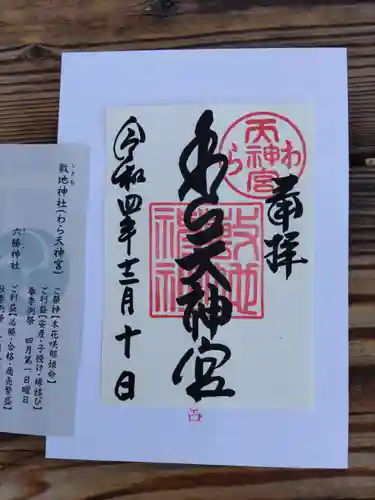 奉拝
わら天神宮
令和四年十二月十日
わら
天神宮
敷地
神社
しきち
敷地神社(わら天神宮)
ご祭神【木花咲耶姫命】
ご利益【安産・子授け・縁結び】
春季例祭 四月第一日曜日
六勝神社
ご利益【必勝・合格・商売繁盛】